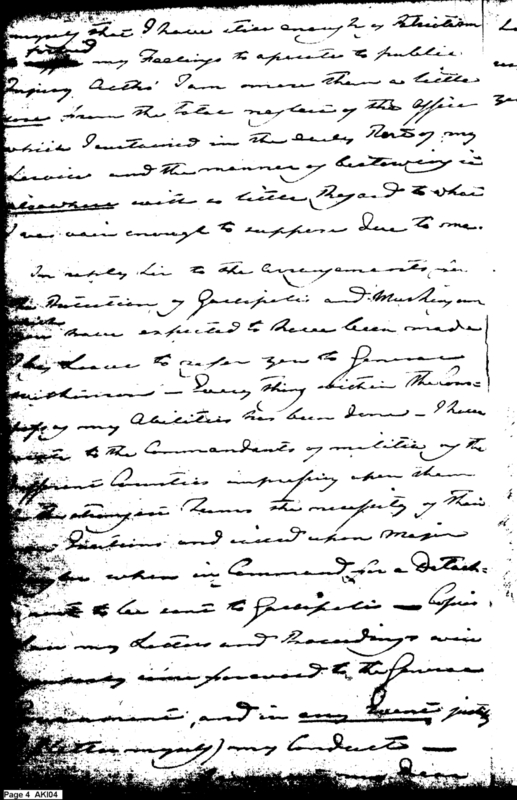 myself that I have still enough of Patriotism
to forbid my Feelings to operate to public
Injury, altho' I am more than a little
sore from the total neglect of the Office
which I sustained in the early Part of my
Service and the manner of bestowing it
elsewhere with so little Regard to what
I was vain enough to suppose due to me.
In reply Sir to the arrangements in
the Protection of Gallipolis and Muskingum
which you have expected to have been made
I beg Leave to refer you to General
Wilkinson – Every thing within the Com-
pass of my Abilities has been done – I have
wrote to the Commandants of militia of the
different Counties impressing upon them
in the strongest Terms the necessity of their
Exertions and called upon Major
when in Command for a Detach-
ment to be sent to Gallipolis — Copies
of my Letters and Proceedings will
come forward to the General
Government, and in any Event justify
(I flatter myself) my Conduct —
my Dear
Page 4 AKI04